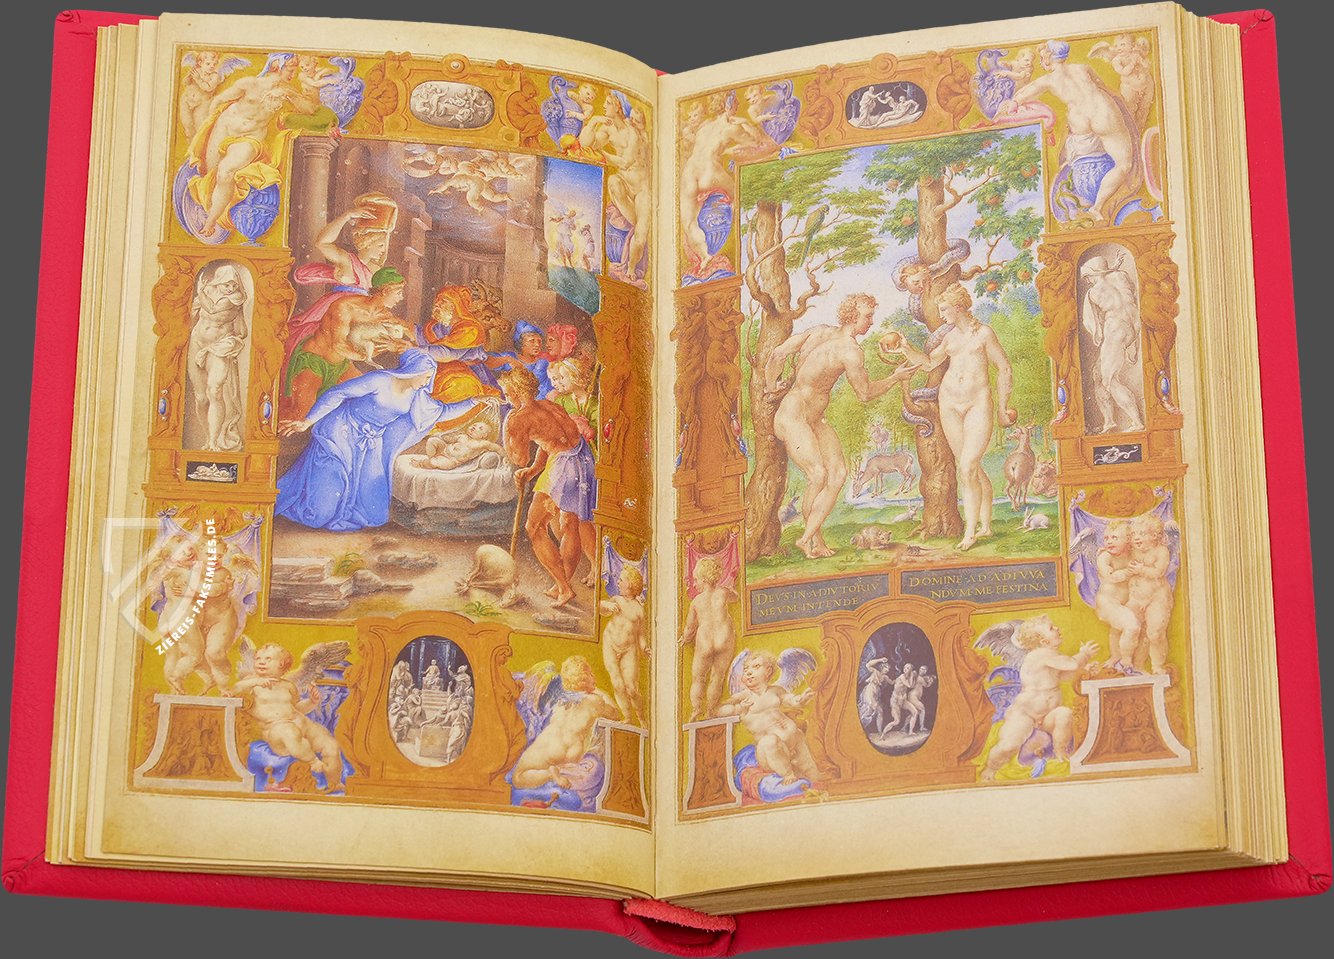 DEVS·IN·ADIVTORIV
MEVM·INTENDE
DOMINE·AD·ADIVVA
NDVM·ME·FESTINA
ZIEREIS-FAKSIMILES.DE